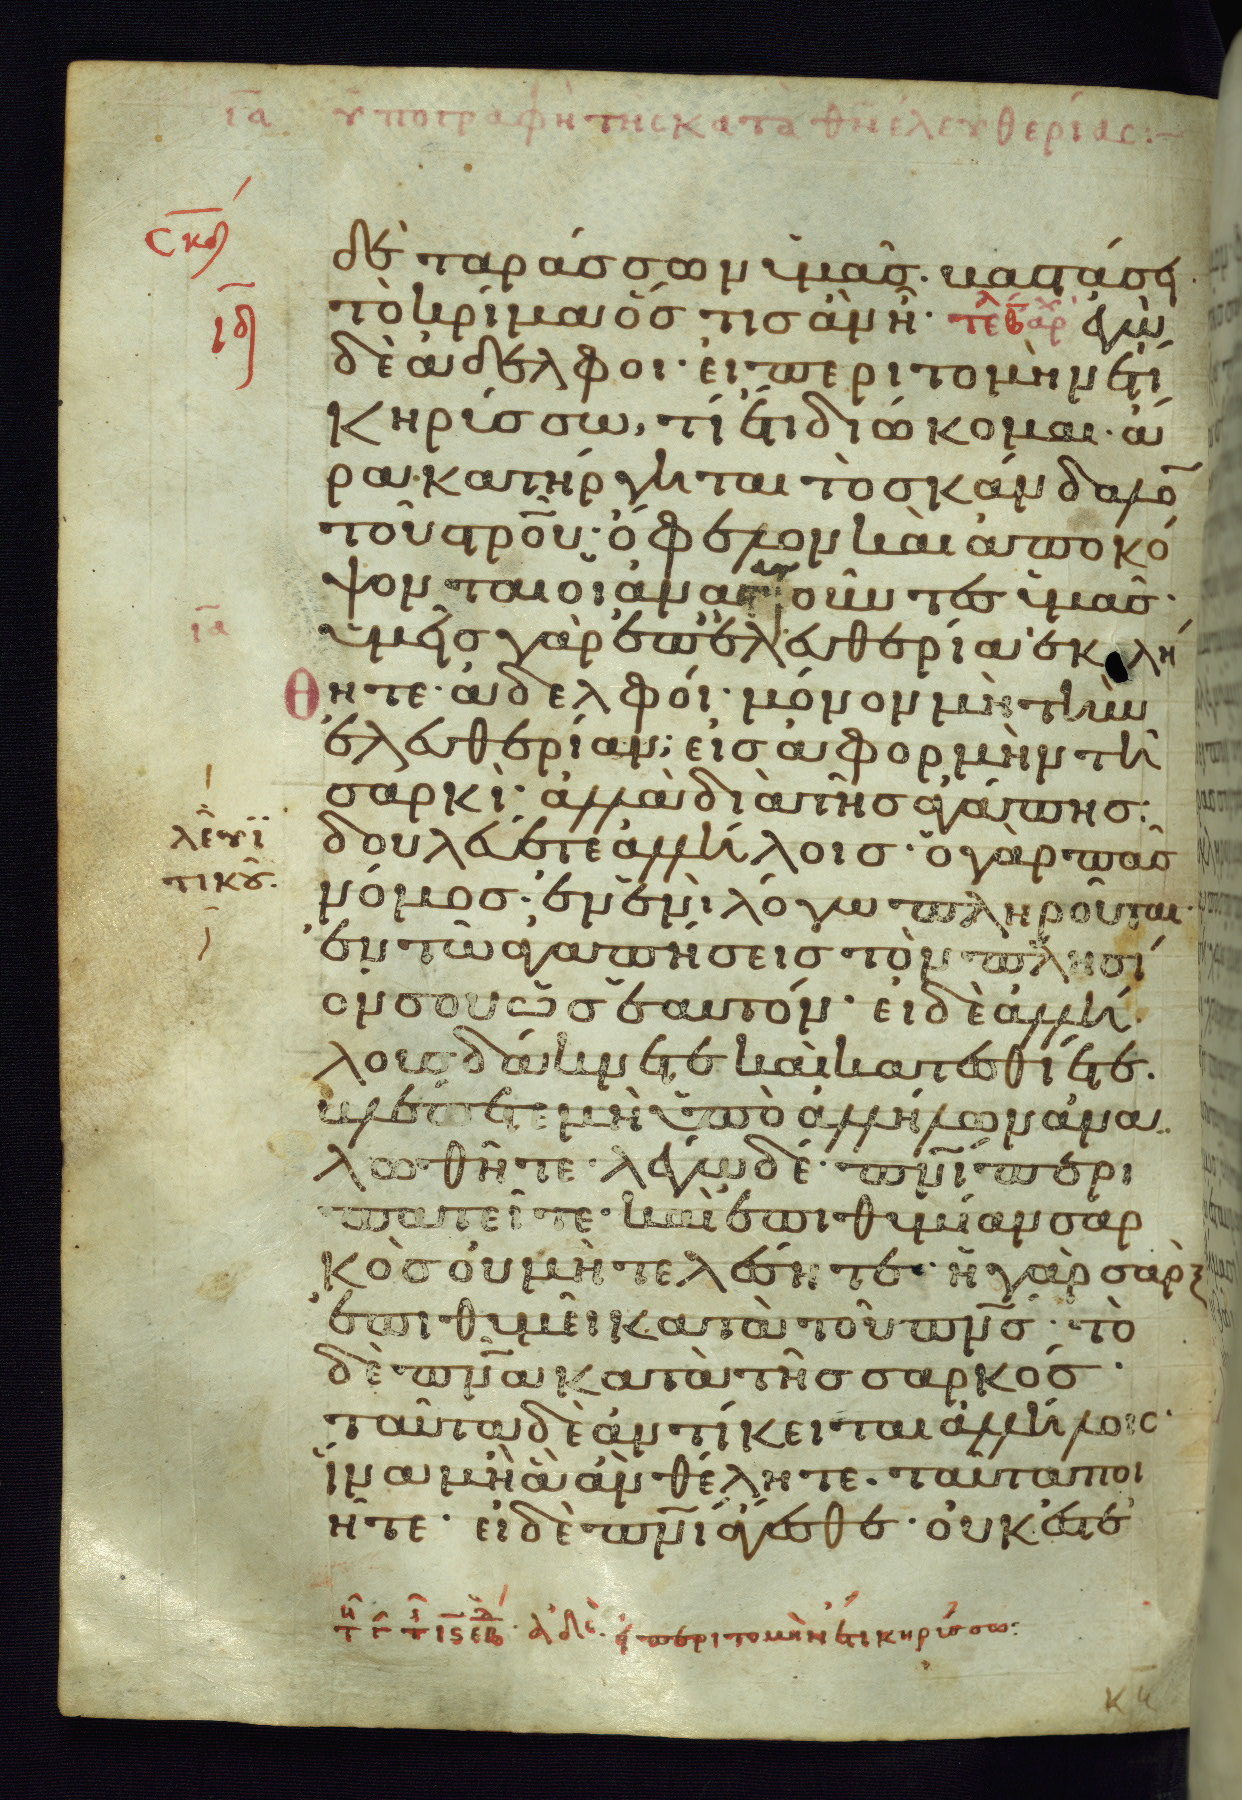 ῑᾱ ὑπογραφὴ τῆς κατὰ θ̅ν̅ ἐλευθερίας:
δὲ ταράσσων ὑμᾶς. βαστάσει
τὸ κρίμα ὅς τις ἂν ῇ· τε ἀρχ ἐγὼ
δὲ ἀδελφοι· εἰ περιτομὴν ἔτι
κηρύσσω, τί ἔτι διώκομαι· ἄ
ρα κατήργηται τὸ σκάνδαλο̅
τοῦ στ̅ρο̅υ· ὄφελον καὶ ἀποκό
ψονται οἱ ἀναστατοῦντες ὑμᾶς·
ὑμεῖς γὰρ ἐπ ἐλευθερία ἐκλή
ῑᾱ
θητε· ἀδελφοί· μόνον μὴ τὴν
ἐλευθερίαν; εἰς ἀφορμὴν τῆ
σαρκὶ· ἀλλὰ διὰ τῆς ἀγάπης:
δουλεύετε ἀλλήλοις· ὁ γὰρ πᾶς
λευϊ
τικοῦ.
νόμος· ἐν ἑνὶ λόγω πληροῦται·
ἐν τῶ ἀγαπήσεις τὸν πλησί
ον σου ὡς ἑαυτόν· εἰ δὲ ἀλλή
λους δάκνετε καὶ κατεσθίετε.
βλέπετε μὴ ὑπὸ ἀλλήλων ἀνα
λωθῆτε· λέγω δέ· π̅ν̅ι̅ περι
πατεῖτε· καὶ ἐπιθυμίαν σαρ
κὸς οὐ μὴ τελέσητε· ἡ γὰρ σὰρξ
ἐπιθυμεῖ κατὰ τοῦ π̅ν̅ς̅· τὸ
δὲ π̅ν̅α̅ κατὰ τῆς σαρκός·
ταῦτα δὲ ἀντίκειται ἀλλήλοις·
ἵνα μὴ ἃ ἂν θέλητε. ταῦτα ποι
ῆτε· εἰ δὲ π̅ν̅ι̅ ἄγεσθε· οὐκ ἐστὲ
ἀδε. εἰ περιτομὴν ἔτι κηρύσσω: